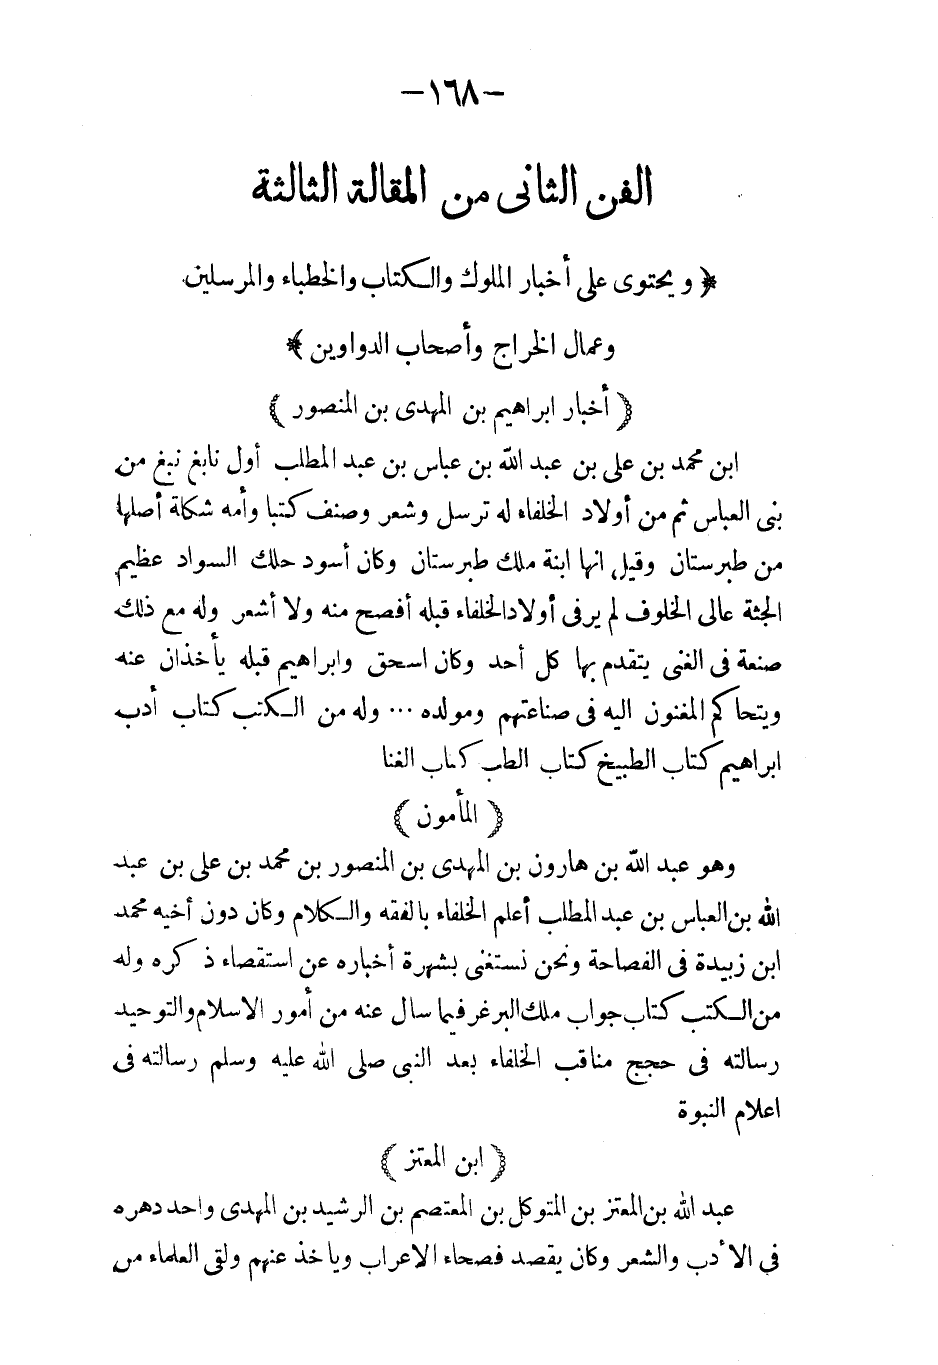 -١٦٨-
الفن الثانى من المقالة الثالثة
﴿ ويحتوى على أخبار الملوك والكتاب والخطباء والمرسلين
وعمال الخراج وأصحاب الدواوين ﴾
( أخبار ابراهيم بن المهدى بن المنصور )
ابن محمد بن على بن عبد الله بن عباس بن عبد المطلب أول نابغ نبغ من
بنى العباس ثم من أولاد الخلفاء له ترسل وشعر وصنف كتبا وأمه شكلة أصلها
من طبرستان وقيل انها ابنة ملك طبرستان وكان أسود حلك السواد عظيم
الجثة عالى الخلوف لم يرفى أولادالخلفاء قبله أفصح منه ولا أشعر وله مع ذلك
صنعة فى الغنى يتقدم بها كل أحد وكان اسحق وابراهيم قبله يأخذان عنه
ويتحاكم المغنون اليه فى صناعتهم ومولده ... وله من الكتب كتاب أدب
ابراهيم كتاب الطبيخ كتاب الطب كتاب الغنا
( المأمون )
وهو عبد الله بن هارون بن المهدى بن المنصور بن محمد بن على بن عبد
الله بن العباس بن عبد المطلب أعلم الخلفاء بالفقه والكلام وكان دون أخيه محمد
ابن زبيدة فى الفصاحة ونحن نستغنى بشهرة أخباره عن استقصاء ذكره وله
من الكتب كتاب جواب ملك البرغر فيما سال عنه من أمور الاسلام والتوحيد
رسالته فى حجج مناقب الخلفاء بعد النبى صلى الله عليه وسلم رسالته فى
اعلام النبوة
( ابن المعتز )
عبد الله بن المعتز بن المتوكل بن المعتصم بن الرشيد بن المهدى واحد دهره
فى الأدب والشعر وكان يقصد فصحاء الاعراب وياخذ عنهم ولقى العلماء من